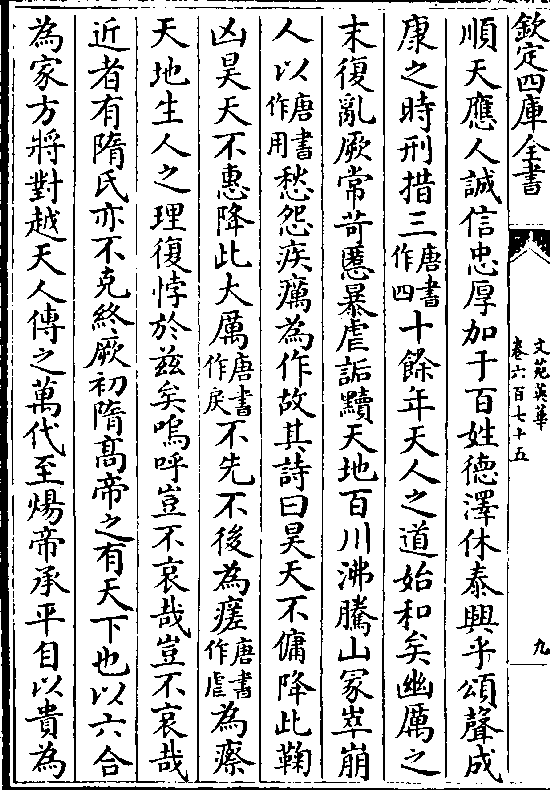 欽定四庫全書
文苑英華
卷六百七十五
九
順天應人誠信忠厚加于百姓德澤休泰興乎頌聲成
康之時刑措三唐書作四十餘年天人之道始和矣幽厲之
末復亂厥常苛慝暴虐詬黷天地百川沸騰山冢崒崩
人以唐書作用愁怨疾癘為作故其詩曰昊天不傭降此鞠
凶昊天不惠降此大厲唐書作戾不先不後為瘥唐書作虐為瘵
天地生人之理復悖於兹矣嗚呼豈不哀哉豈不哀哉
近者有隋氏亦不克終厥初隋髙帝之有天下也以六合
為家方將對越天人傳之萬代至煬帝承平自以貴為